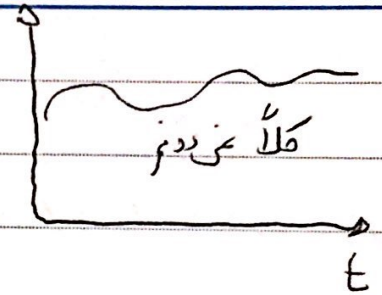 کلاً نمی‌دونم
t